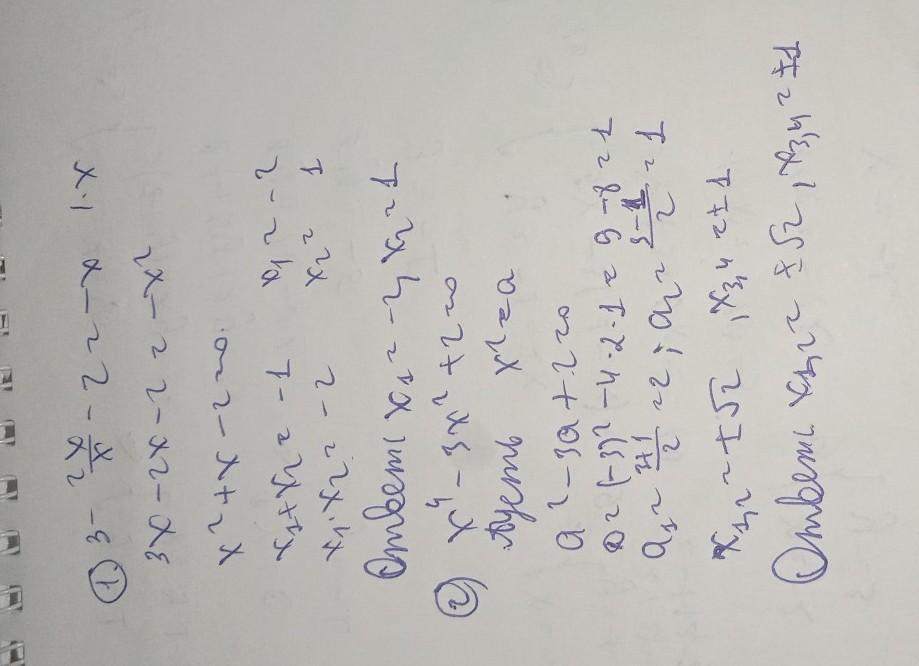 1) 3 - 2x/x - 2 = -x |·x
3x - 2x - 2 = -x²
x² + x - 2 = 0.
x₁ + x₂ = -1 x₁ = -2
x₁·x₂ = -2 x₂ = 1
Ответ x₁ = -2, x₂ = 1
2) x⁴ - 3x² + 2 = 0
Пусть x² = a
a² - 3a + 2 = 0
D = (-3)² - 4·2·1 = 9 - 8 = 1
a₁ = 3+1/2 = 2; a₂ = 3-1/2 = 1
x₁,₂ = ±√2, x₃,₄ = ±1
Ответ x₁,₂ = ±√2, x₃,₄ = ±1